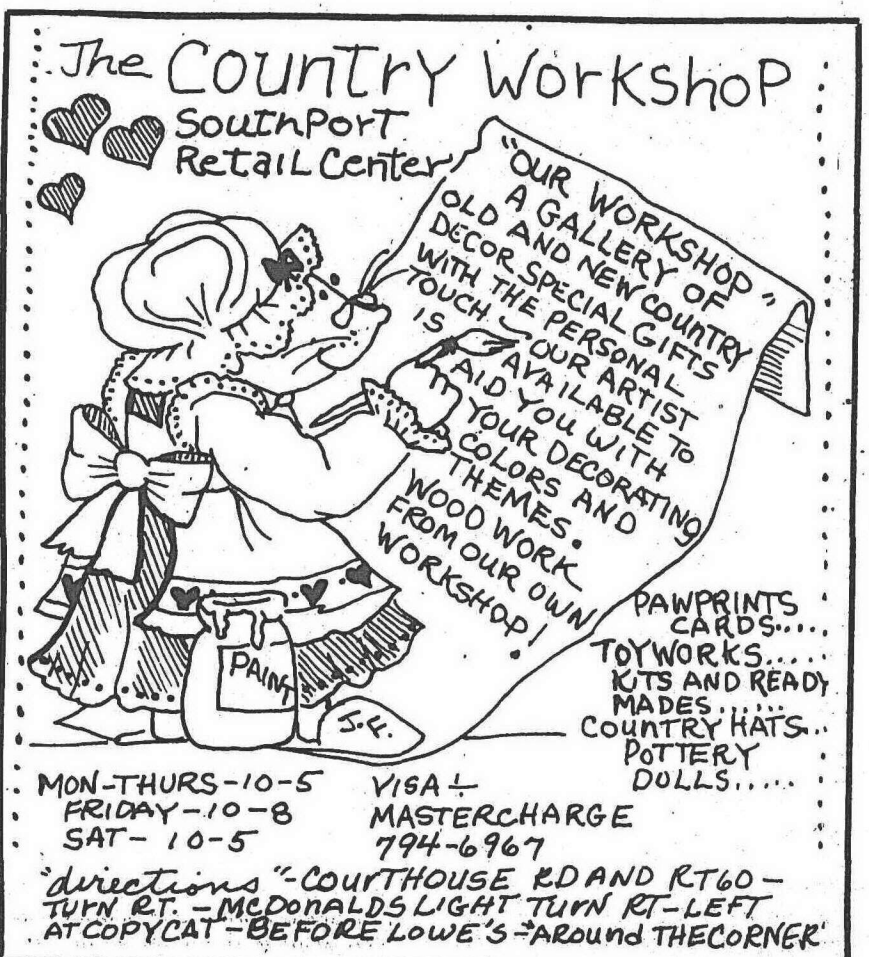 The Country Workshop
Southport
Retail Center
"OUR WORKSHOP"
A GALLERY OF
OLD AND NEW COUNTRY
DECOR SPECIAL GIFTS
WITH THE PERSONAL
TOUCH - OUR ARTIST
IS AVAILABLE TO
AID YOU WITH
YOUR DECORATING
COLORS AND
THEMES.
WOOD WORK
FROM OUR OWN
WORKSHOP!
PAWPRINTS
CARDS.....
TOYWORKS.....
KITS AND READY
MADES......
COUNTRY HATS...
POTTERY
DOLLS.....
PAINT
J.F.
MON-THURS-10-5
FRIDAY-10-8
SAT-10-5
VISA +
MASTERCHARGE
794-6967
"directions"-COURTHOUSE RD AND RT60-
TURN RT.-MCDONALDS LIGHT TURN RT-LEFT
AT COPYCAT-BEFORE LOWE'S-"AROUND THE CORNER"